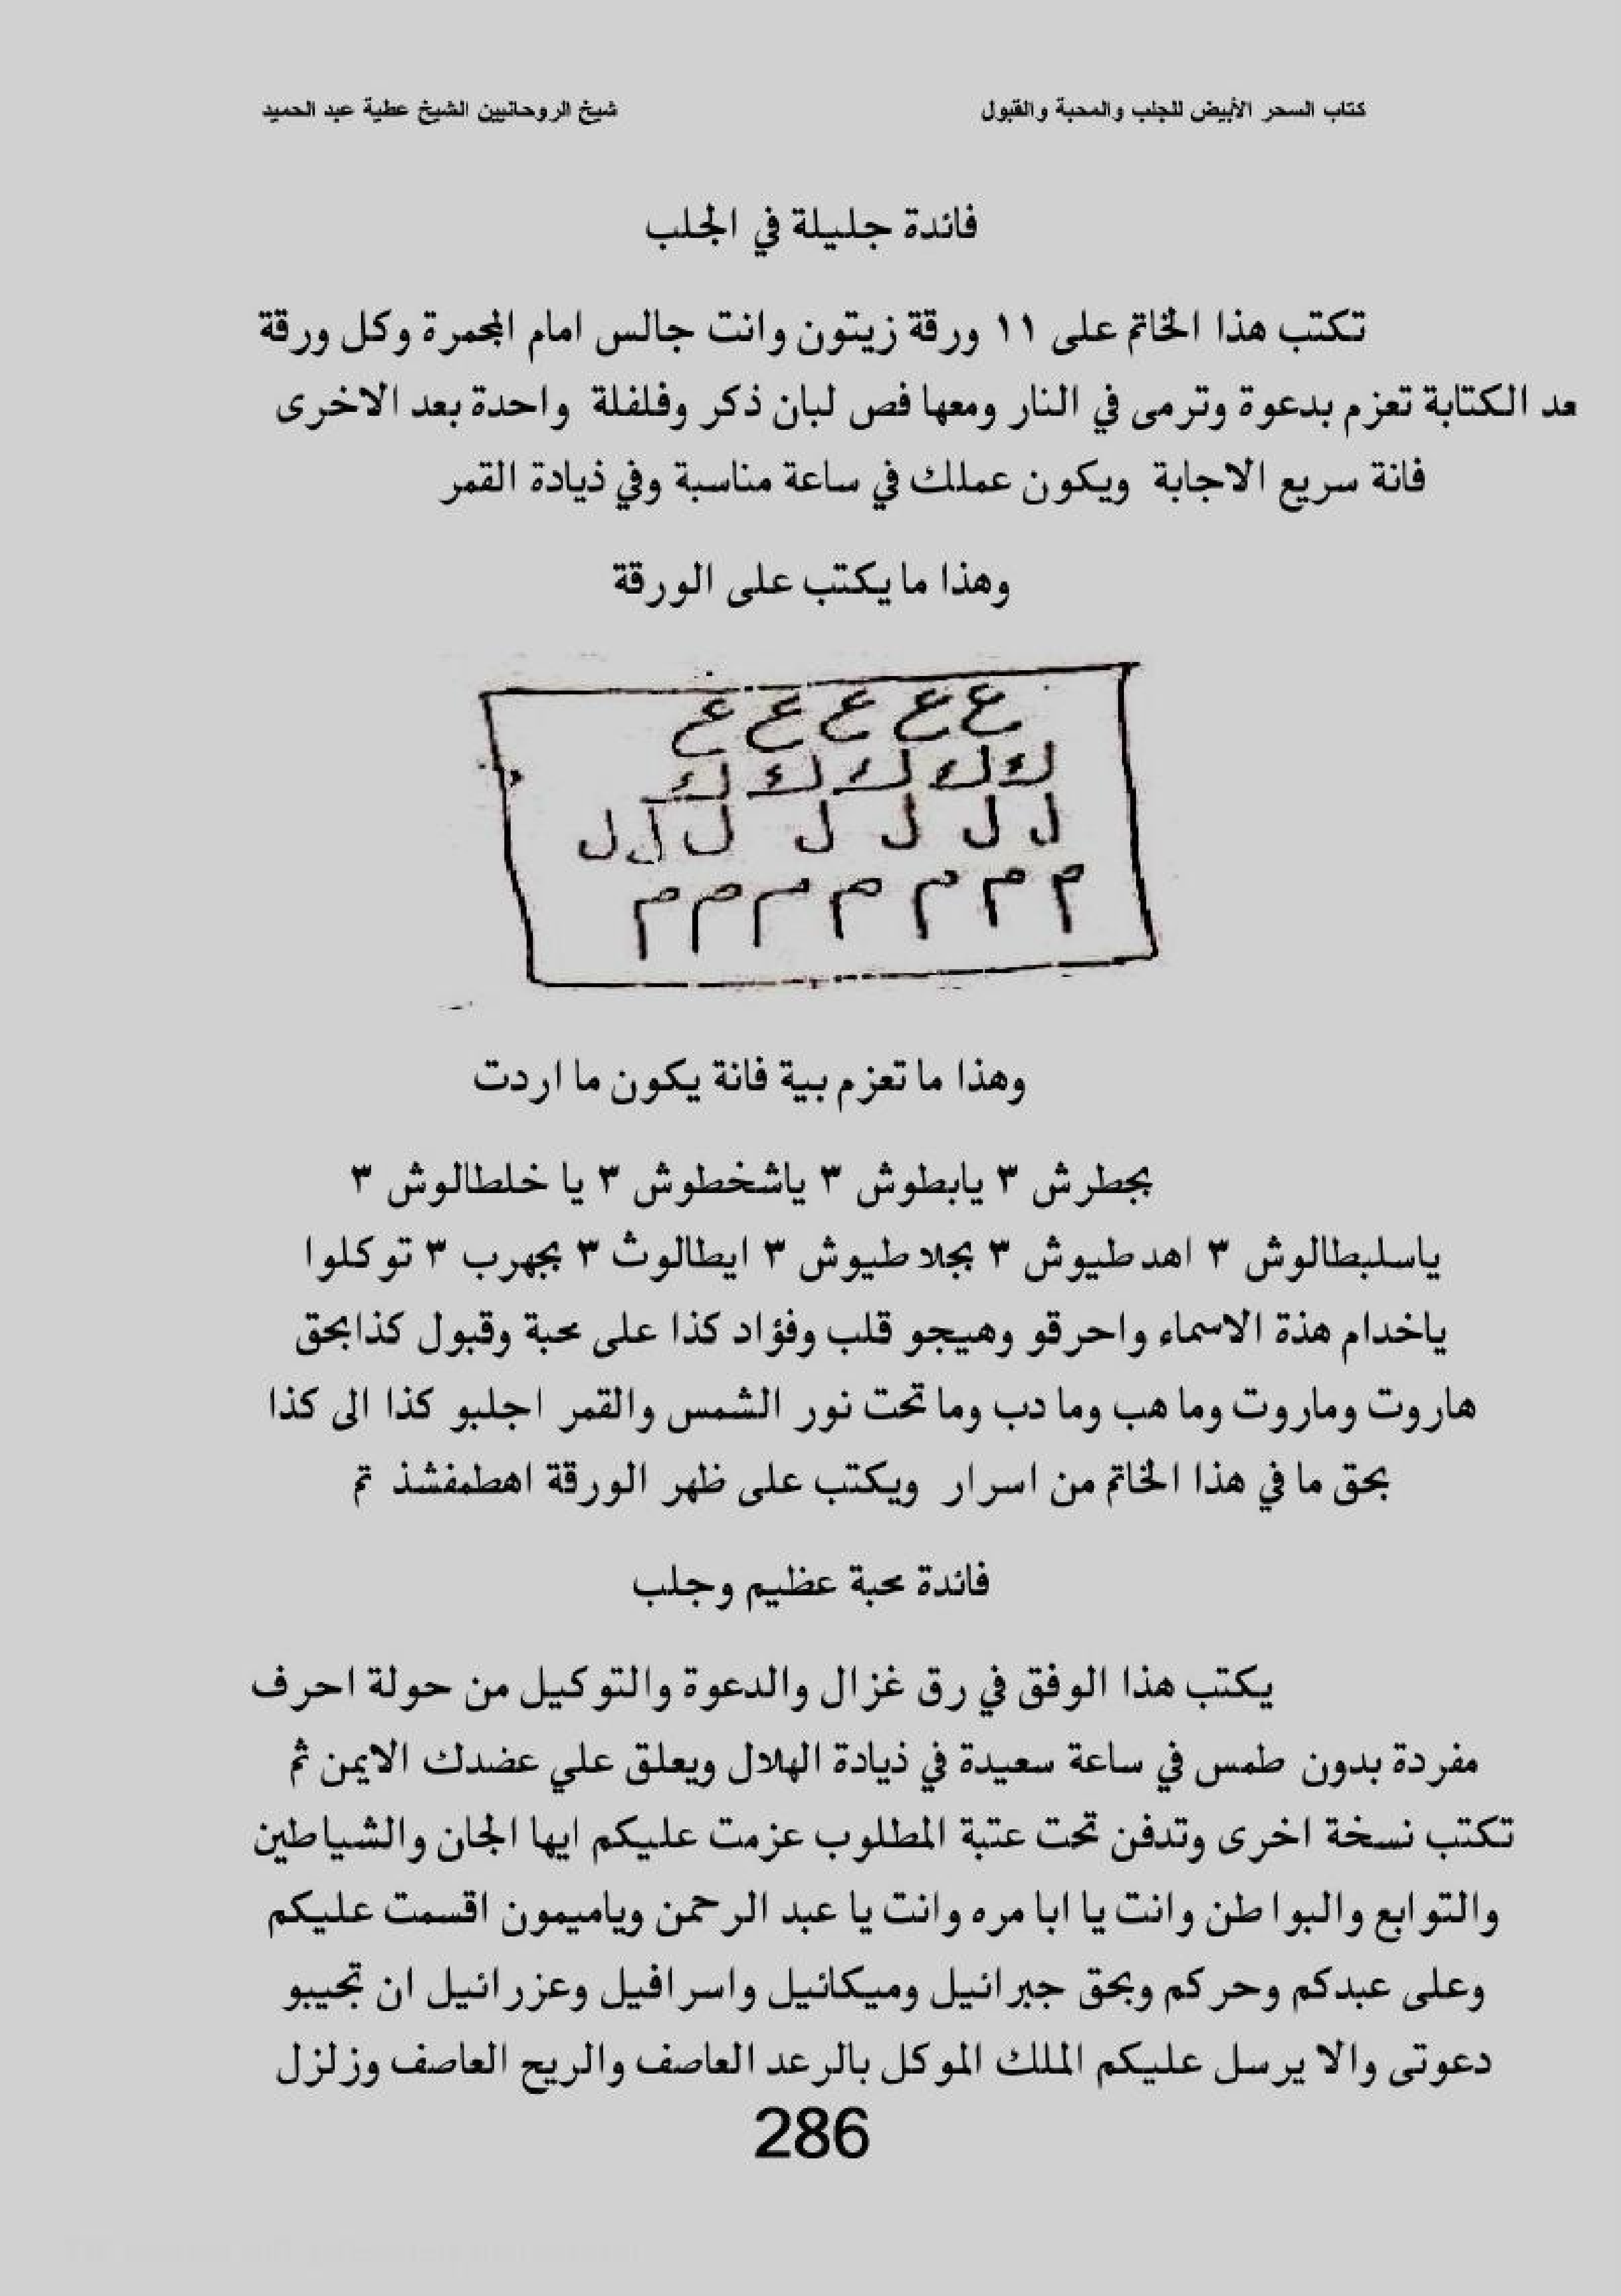 كتاب السحر الأبيض للجلب والمحبة والقبول
شيخ الروحانيين الشيخ عطية عبد الحميد
فائدة جليلة في الجلب
تكتب هذا الخاتم على ١١ ورقة زيتون وانت جالس امام المجمرة وكل ورقة
عد الكتابة تعزم بدعوة وترمى في النار ومعها فص لبان ذكر وفلفلة واحدة بعد الاخرى
فانة سريع الاجابة ويكون عملك في ساعة مناسبة وفي ذيادة القمر
وهذا ما يكتب على الورقة
ع ع ع ع ع
ك ك ك ك ك
ل ل ل ل ل ل ل
م م م م م م م
وهذا ما تعزم بية فانة يكون ما اردت
بجطرش ٣ يابطوش ٣ ياشخطوش ٣ يا خلطالوش ٣
ياسلبطالوش ٣ اهدطيوش ٣ بجلاطيوش ٣ ايطالوث ٣ بجهرب ٣ توكلوا
ياخدام هذة الاسماء واحرقو وهيجو قلب وفؤاد كذا على محبة وقبول كذابحق
هاروت وماروت وما هب وما دب وما تحت نور الشمس والقمر اجلبو كذا الى كذا
بحق ما في هذا الخاتم من اسرار ويكتب على ظهر الورقة اهطمفشذ تم
فائدة محبة عظيم وجلب
يكتب هذا الوفق في رق غزال والدعوة والتوكيل من حولة احرف
مفردة بدون طمس في ساعة سعيدة في ذيادة الهلال ويعلق علي عضدك الايمن ثم
تكتب نسخة اخرى وتدفن تحت عتبة المطلوب عزمت عليكم ايها الجان والشياطين
والتوابع والبواطن وانت يا ابا مره وانت يا عبد الرحمن وياميمون اقسمت عليكم
وعلى عبدكم وحركم وبحق جبرائيل وميكائيل واسرافيل وعزرائيل ان تجيبو
دعوتى والا يرسل عليكم الملك الموكل بالرعد العاصف والريح العاصف وزلزل
286